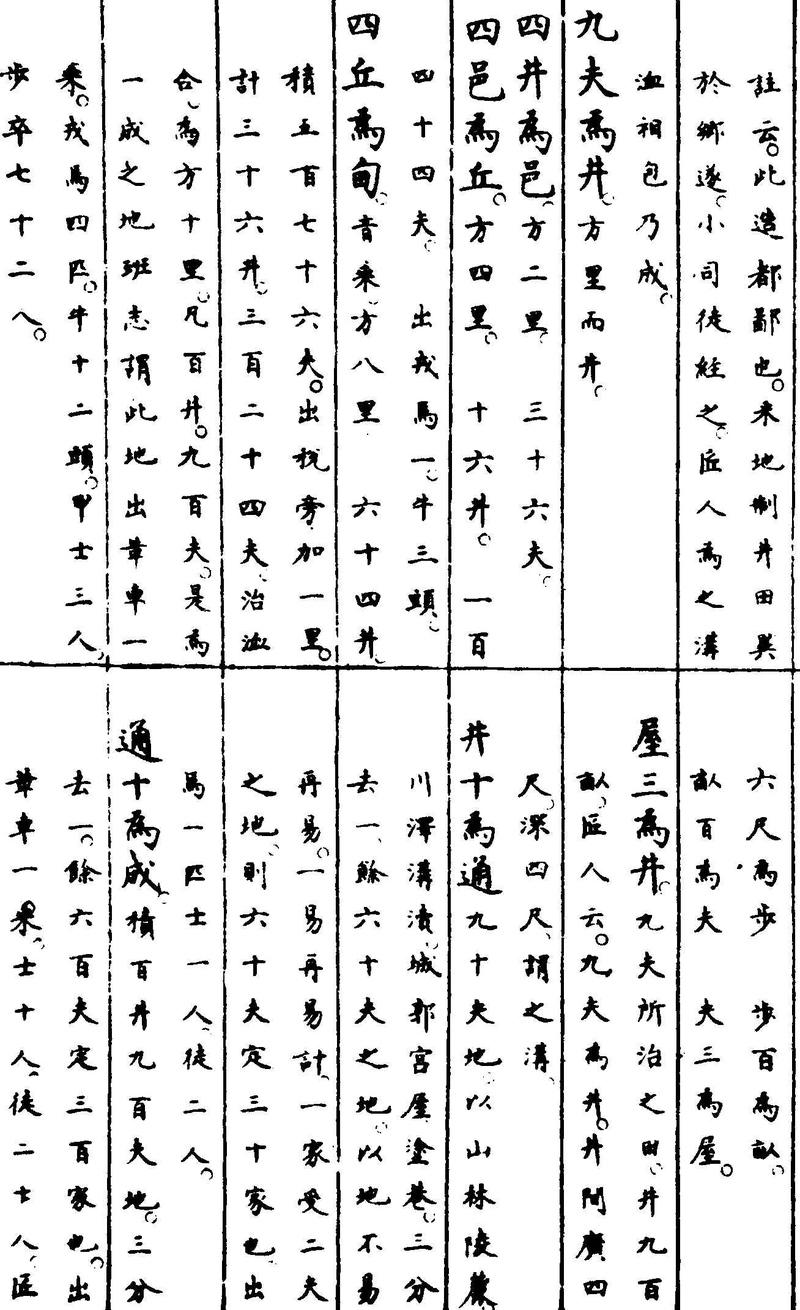 註云。此造都鄙也。采地制井田異
於鄉遂。小司徒經之。匠人為之溝
洫相包乃成。
九夫為井。方里而井。
四井為邑。方二里。三十六夫。
四邑為丘。方四里。十六井。一百
四十四夫。出戎馬一。牛三頭。
四丘為甸。音乘。方八里 六十四井。
積五百七十六夫。出稅旁加一里。
計三十六井。三百二十四夫。治洫
合為方十里。凡百井。九百夫。是為
一成之地班志謂此地出革車一
乘。戎馬四匹。牛十二頭。甲士三人。
步卒七十二人。
六尺為步 步百為畝。
畝百為夫 夫三為屋。
屋三為井。九夫所治之田。井九百
畝。匠人云。九夫為井。井間廣四
尺。深四尺。謂之溝。
井十為通九十夫地。以山林陵麓
川澤溝瀆。城郭宮屋塗巷。三分
去一、餘六十夫之地。以地不易
再易。一易再易計。一家受二夫
之地。則六十夫定三十家也出
馬一匹士一人。徒二人。
通十為成。積百井九百夫地。三分
去一。餘六百夫定三百家也。出
革車一乘。士十人。徒二十人。匠